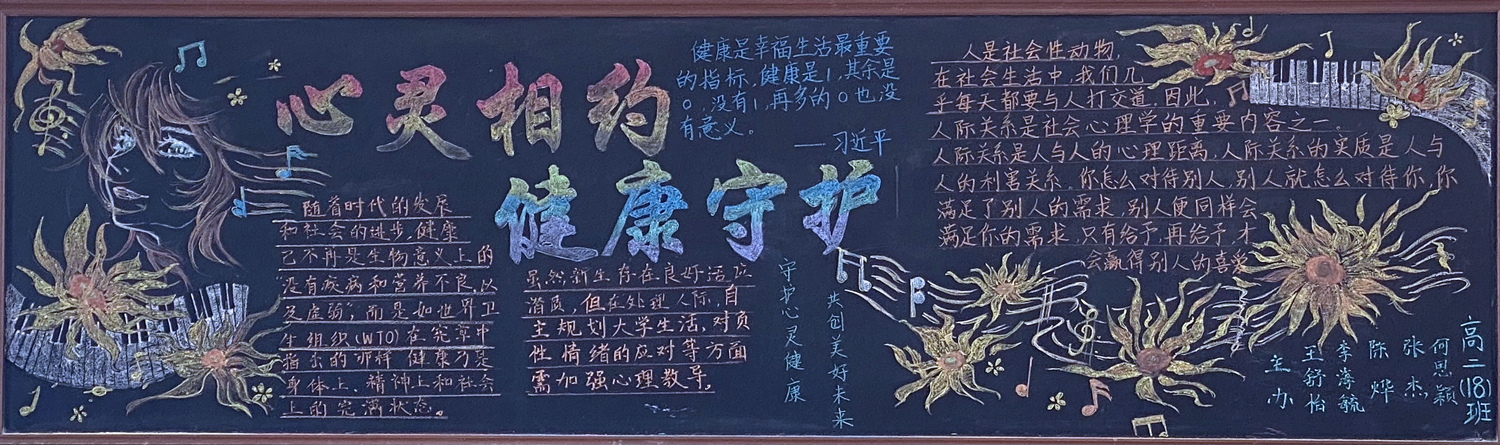 心灵相约
健康守护
健康是幸福生活最重要
的指标,健康是1,其余是
0,没有1,再多的0也没
有意义。
——习近平
随着时代的发展
和社会的进步,健康
已不再是生物意义上的
没有疾病和营养不良,以
及虚弱,而是如世界卫
生组织(WTO)在宪章中
指出的那样 健康乃是
身体上、精神上和社会
上的完满状态。
虽然新生存在良好适应
消质,但在处理人际,自
主规划大学生活,对负
性情绪的应对等方面
需加强心理教导。
守护心灵健康
共创美好未来
人是社会性动物,
在社会生活中,我们几
乎每天都要与人打交道,因此,
人际关系是社会心理学的重要内容之一。
人际关系是人与人的心理距离,人际关系的实质是人与
人的利害关系。你怎么对待别人,别人就怎么对待你,你
满足了别人的需求,别人便同样会
满足你的需求,只有给予,再给予,才
会赢得别人的喜爱
高二(18)班
何思颖
张杰
陈烨
李海毓
王舒怡
主办